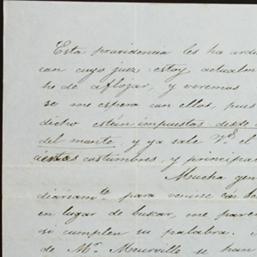 Esta providencia les ha ardi
con cuyo juez estoy actualm
he de aflojar, y veremos
se me espera con ellos, pues
dicho están impuestas desde
del manto, y ya sale Vd. el
estas costumbres, y principa
Mucha gen
diáriamte. para venirse con
en lugar de buscar, me pare
si cumplen su palabra.
de Mr. Meurville se han